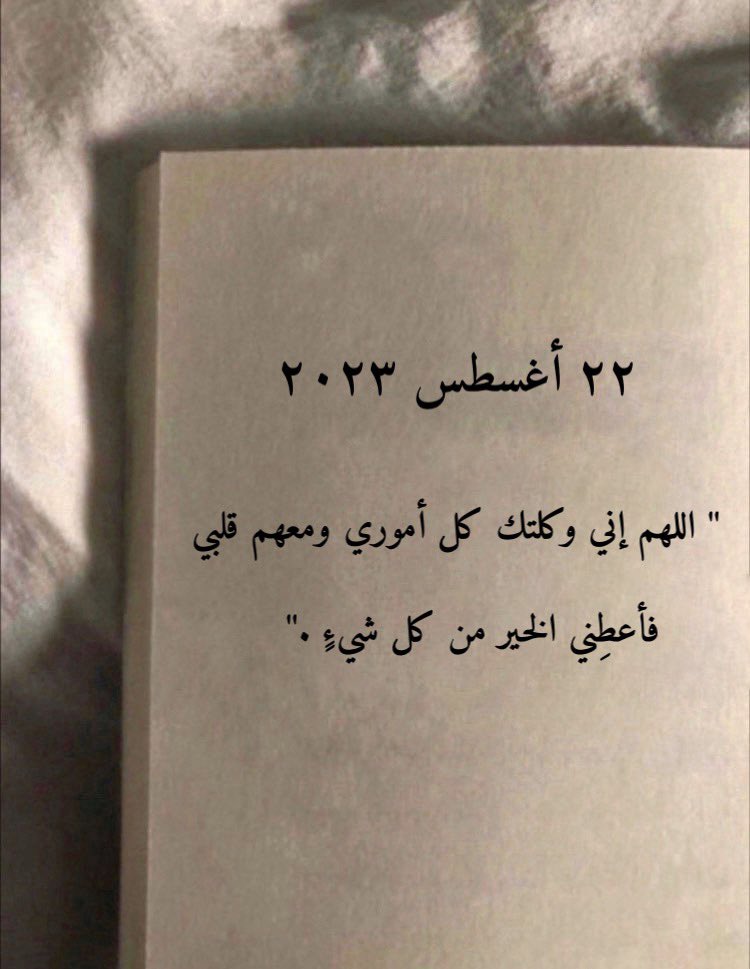 ٢٢ أغسطس ٢٠٢٣
" اللهم إني وكلتك كل أموري ومعهم قلبي
فأعطِني الخير من كل شيءٍ ."